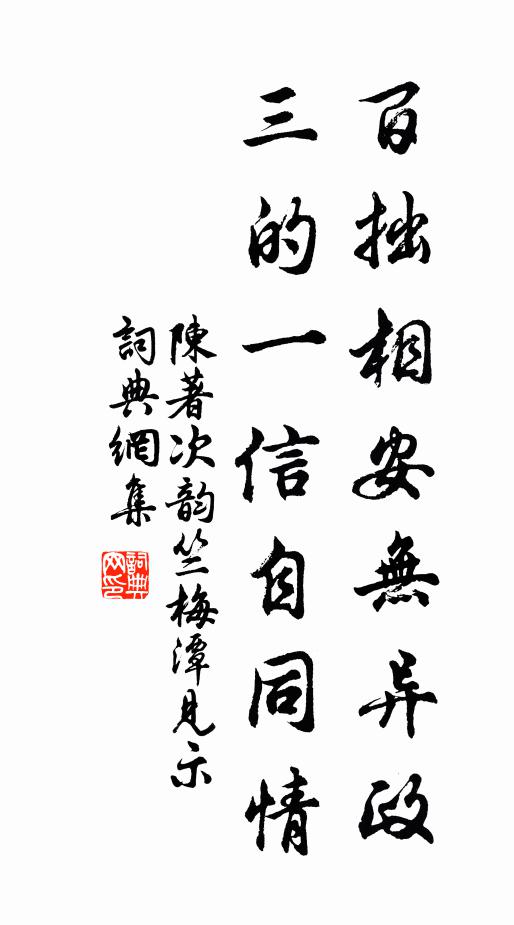 百拙相安無异政
三的一信自同情
陳著次韵竺梅潭見示
詞典網集
詞典網印